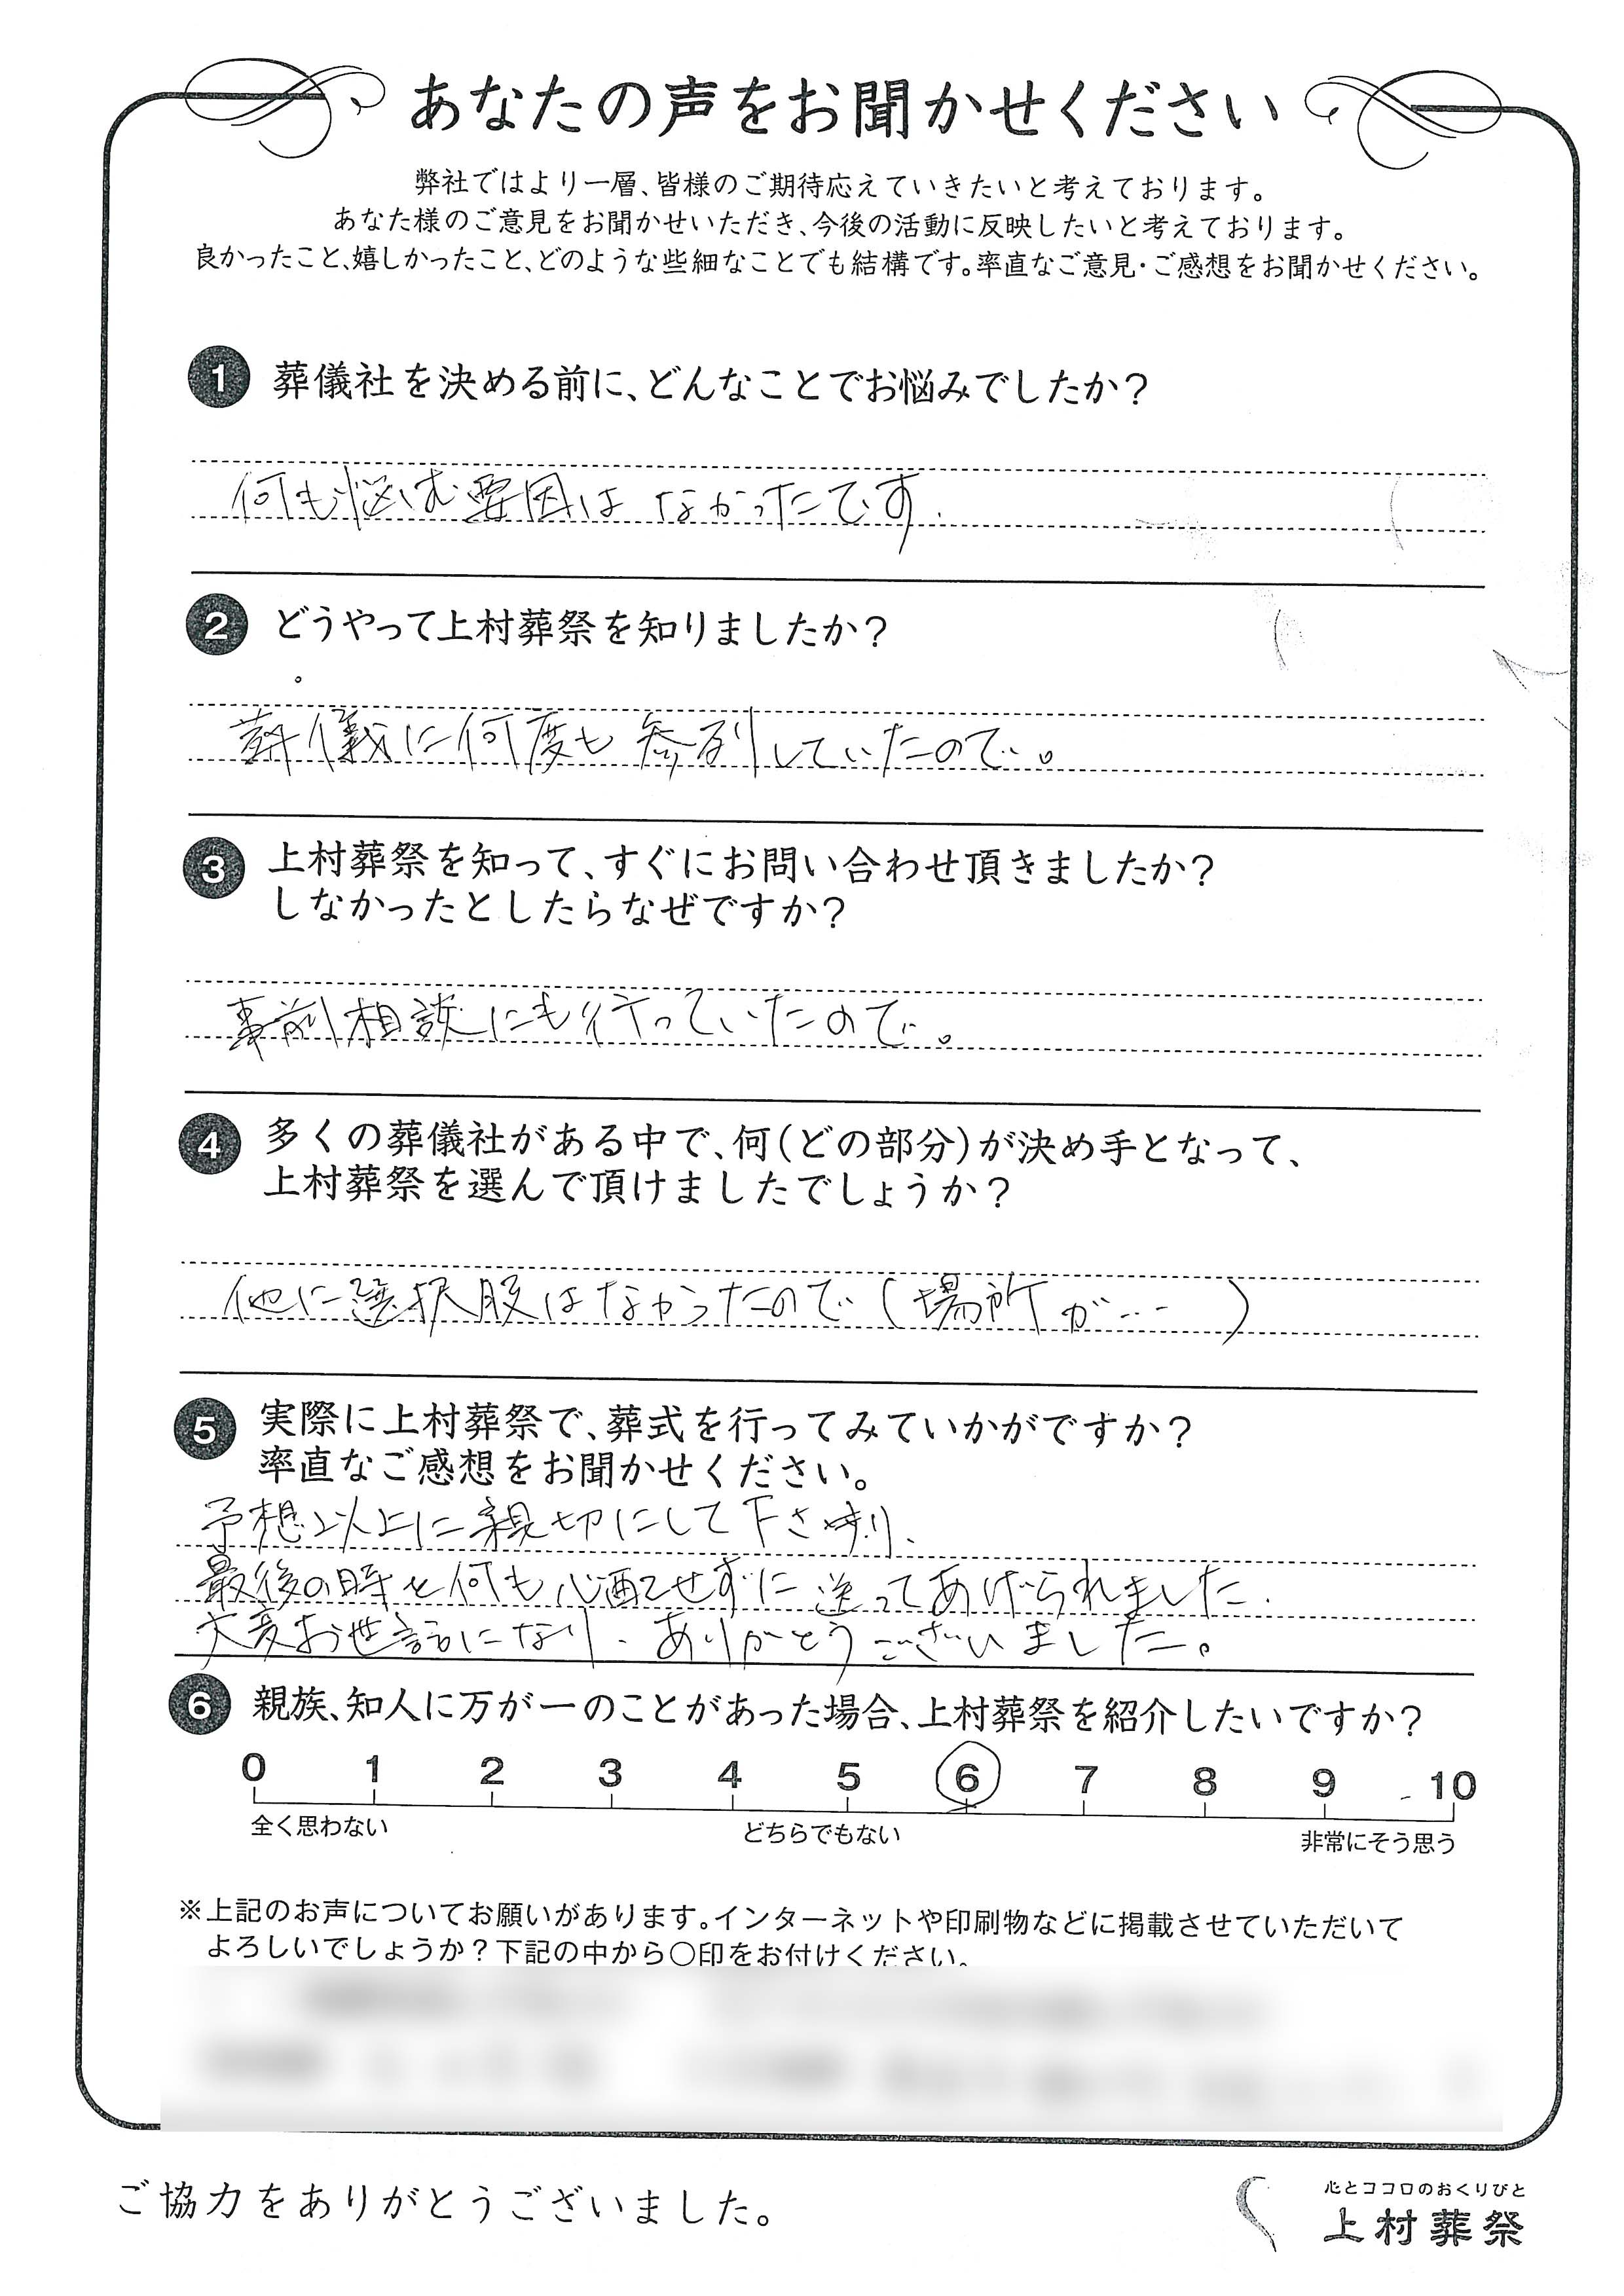 あなたの声をお聞かせください
弊社ではより一層、皆様のご期待応えていきたいと考えております。
あなた様のご意見をお聞かせいただき、今後の活動に反映したいと考えております。
良かったこと、嬉しかったこと、どのような些細なことでも結構です。率直なご意見・ご感想をお聞かせください。
1 葬儀社を決める前に、どんなことでお悩みでしたか？
何も悩む要因はなかったです.
2 どうやって上村葬祭を知りましたか？
葬儀に何度も参列していたので。
3 上村葬祭を知って、すぐにお問い合わせ頂きましたか？
しなかったとしたらなぜですか？
事前相談にも行っていたので。
4 多くの葬儀社がある中で、何（どの部分）が決め手となって、
上村葬祭を選んで頂けましたでしょうか？
他に選択股はなかったので（場所が…）
5 実際に上村葬祭で、葬式を行ってみていかがですか？
率直なご感想をお聞かせください。
予想以上に親切にして下さり、
最後の時を何も心配せずに送ってあげられました.
大変お世話になり、ありがとうございました。
6 親族、知人に万が一のことがあった場合、上村葬祭を紹介したいですか？
0 1 2 3 4 5 6 7 8 9 10
全く思わない どちらでもない 非常にそう思う
※上記のお声についてお願いがあります。インターネットや印刷物などに掲載させていただいて
よろしいでしょうか？下記の中から〇印をお付けください。
ご協力をありがとうございました。
心とココロのおくりびと
上村葬祭